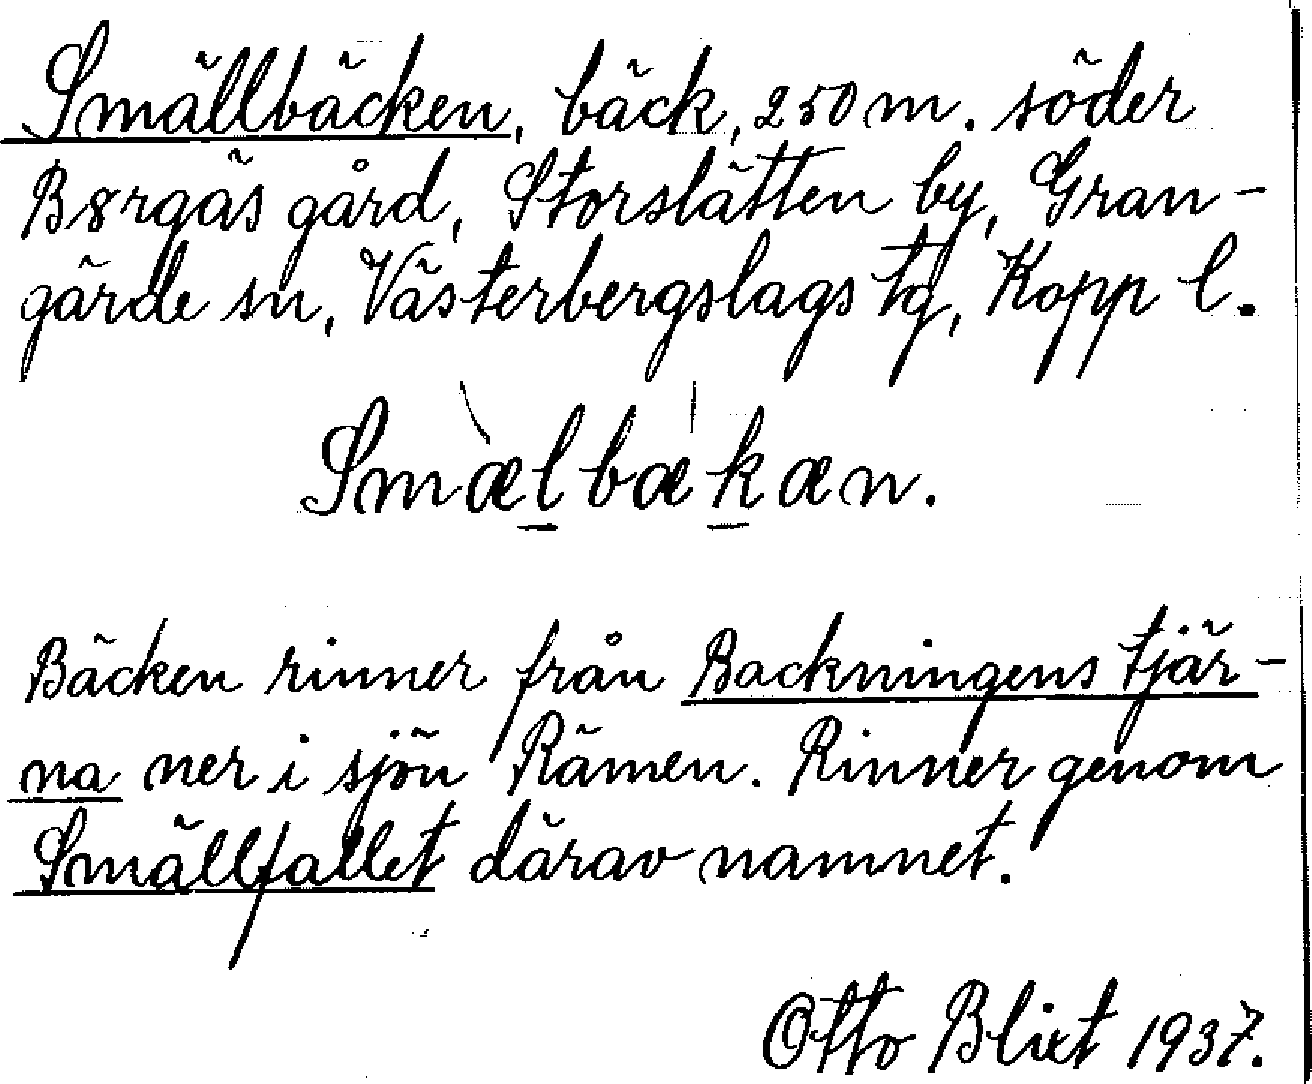 Smällbäcken, bäck, 250 m. söder
Börgäs gård, Storslätten by, Gran-
gärde sn, Västerbergslags tg, Kopp l.
Smælbækæn.
Bäcken rinner från Backningens tjär-
na ner i sjön Rämen. Rinner genom
Smällfallet därav namnet.
Otto Blixt 1937.